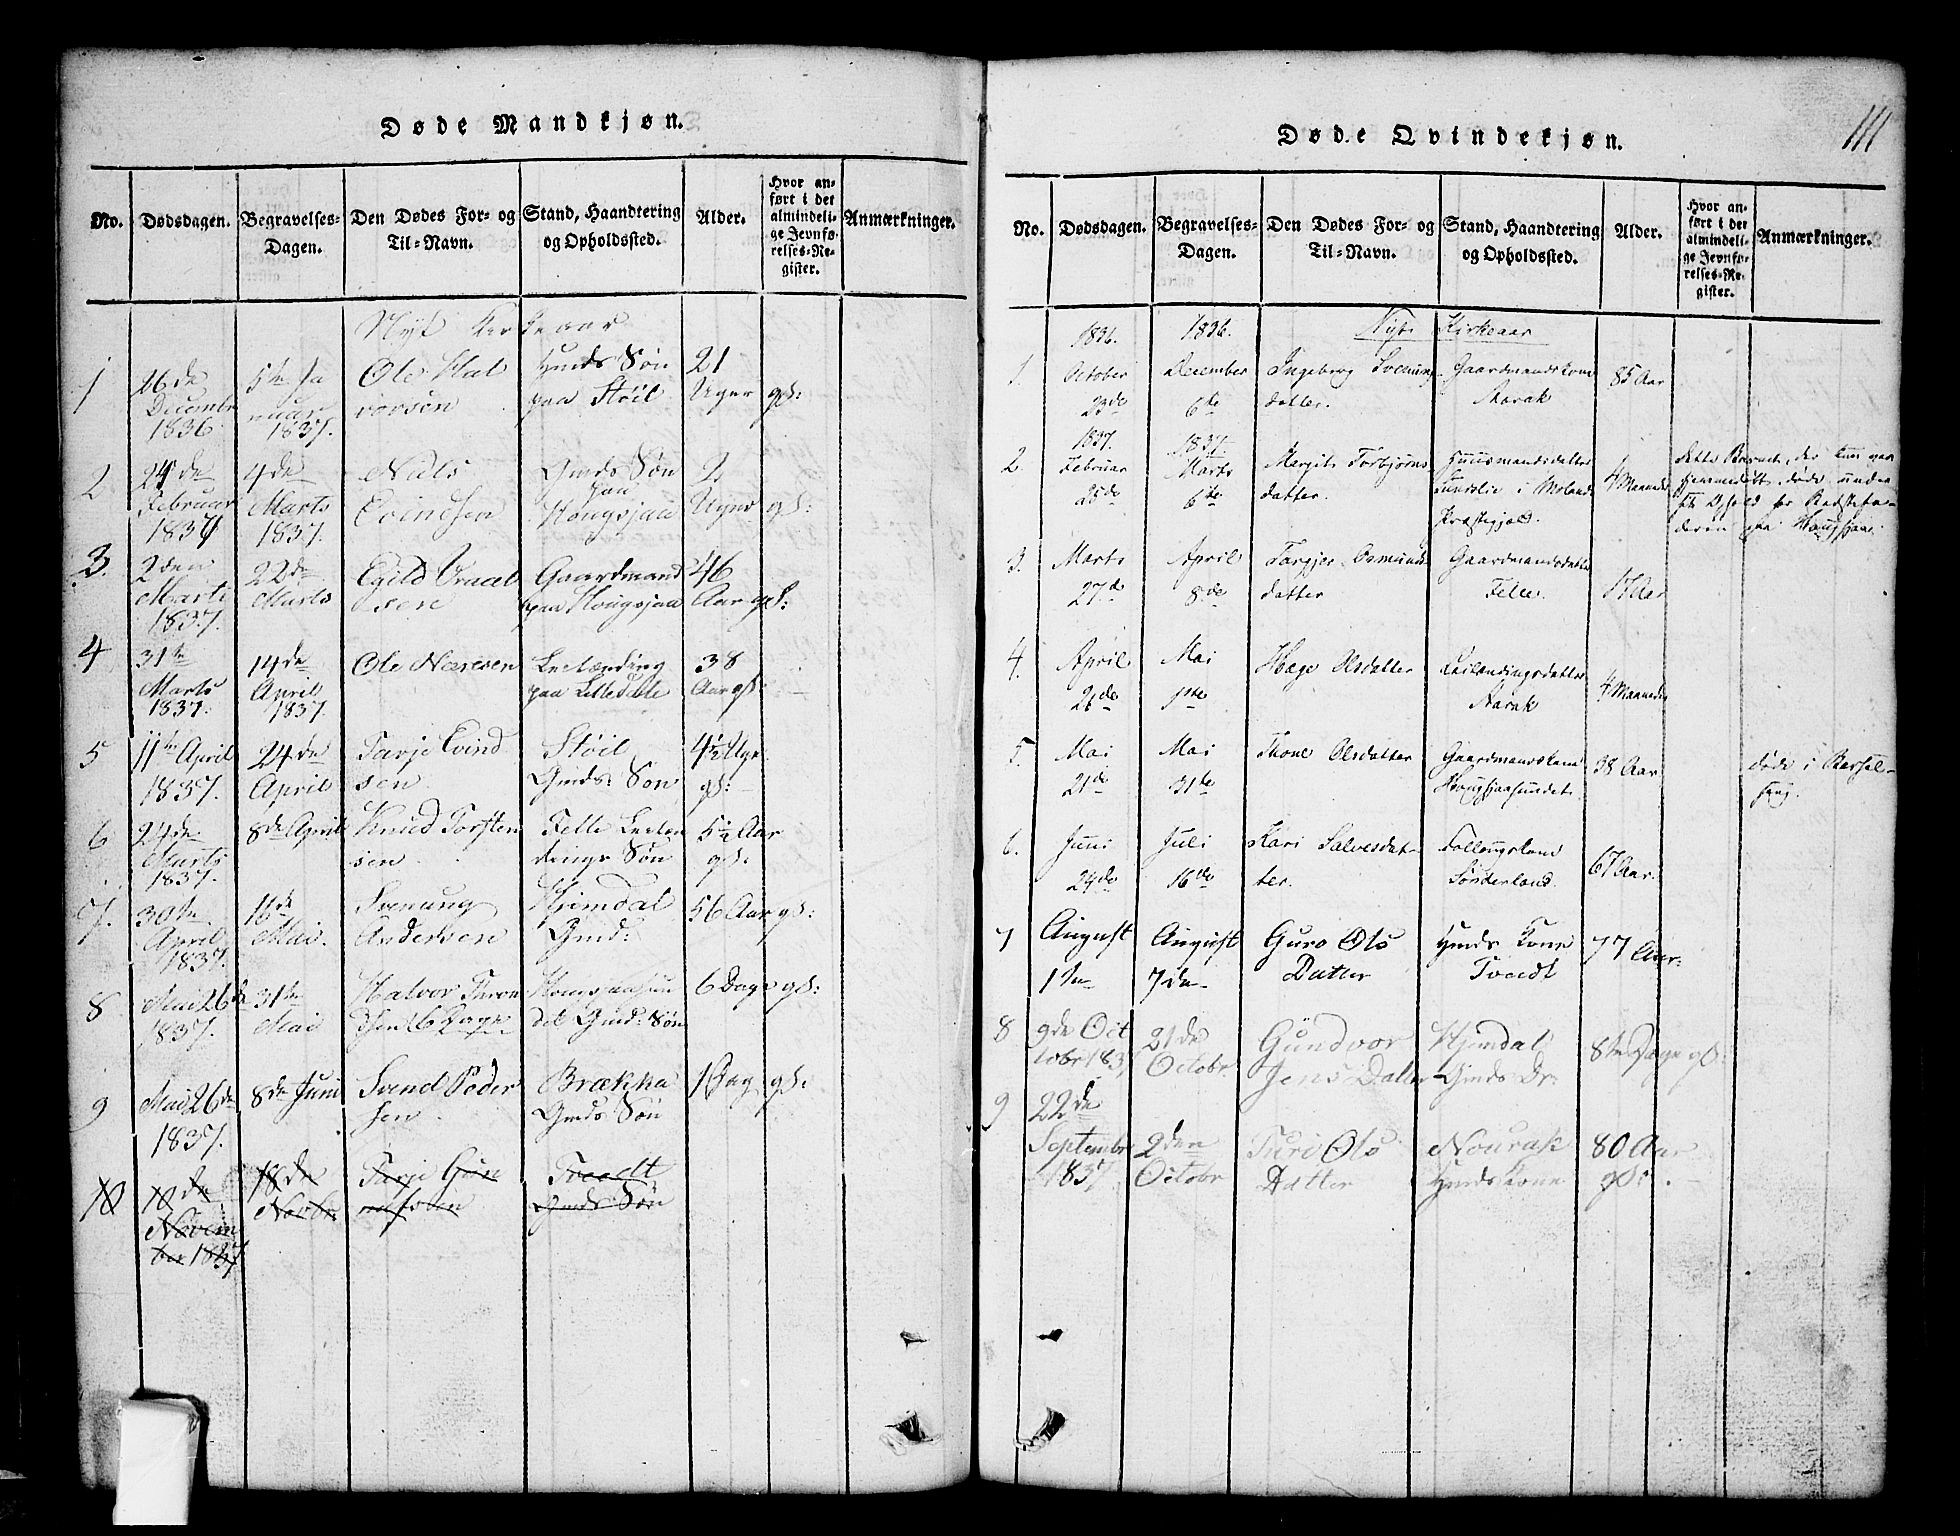 Døde Mandkjøn.
No. Dødsdagen. Begravelses-Dagen. Den Dødes For- og Til-Navn. Stand, Haandtering og Opholdssted. Alder. Hvor anført i det almindelige Jevnførelses-Register. Anmærkninger.
Nyt Kirkeaar
1 26de Decembr 1836 5te Januar 1837. Ole Halvorsen Hmds Søn paa Støil 21 Uger gl:
2 24de Februar 1837 4de Marts 1837. Niels Evindsen Gmds Søn paa Hougsjaa 2 Uger gl:
3. 2den Marts 1837. 22de Marts Egild Gaardmand paa Hougsjaa 46 Aar gl:
4 31te Marts 1837. 14de April 1837. Ole Næresen Leilænding paa 38 Aar gl:
5 11te April 1837. 24de April Tarje Evindsen Støil Gmds: Søn 4½ Uger gl:
6 24de Marts 1837. 8de April Knud Torstensen Felle Leilændings Søn 5½ Aar gl:
7. 30te April 1837. 16de Mai. Svenung Andersen Hjemdal Gmd: 56 Aar gl:
8 Mai 26de 1837. 31te Mai Halvor Hougsjaasundet Gmd: Søn 6 Dage gl:
9 Mai 26de 1837. 8de Juni Svend Pedersen. Brækka Gmds Søn 1 Dag gl:
10 10de November 1837 18de Novbr. Tarje Gunnulfsen Tveedt Gmds Søn
Døde Qvindekjøn.
111
No. Dødsdagen. Begravelses-Dagen. Den Dødes For- og Til-Navn. Stand, Haandtering og Opholdssted. Alder. Hvor anført i det almindelige Jevnførelses-Register. Anmærkninger.
Nyt Kirkeaar
1. 1836. October 23de 1836. December 6te Ingeborg Svenungdatter. Gaardmandskone Aarak 85 Aar
2. 1837. Februar 25de 1837 Marts 6te Margit Torbjørnsdatter. Huusmandsdatter i Molands Præstegjeld. 4 Maaneder dette Barn, der kun var hjemmedøbt, døde under et Ophold hos Bedsteforældrene paa Hougsjaa.
3. Marts 27de April 8de Targjer Osmundsdatter Gaardmandsdatter Felle. 17 Aar
4. April 26de Mai 1ste Hæge Olsdatter Leilændingsdatter Aarak 4 Maaneder
5. Mai 21de Mai 31te Thone Olsdatter Gaardmandskone Hougsjaasundet. 38 Aar døde i Barselseng.
6. Juni 24de Juli 16de Kari Salvesdatter. Sønderland. 67 Aar.
7 August 1ste August 7de Guro Ols Datter Hmds Kone Tveedt 77 Aar
8 9de Octobr 1837 21de Octobr Gundvor Jens Datter Hjemdal Gmds Dr: 8te Dage gl:
9 22de Septembr 1837 2den Octobr Turi Ols Datter Nourak Hmds Kone 80 Aar gl: